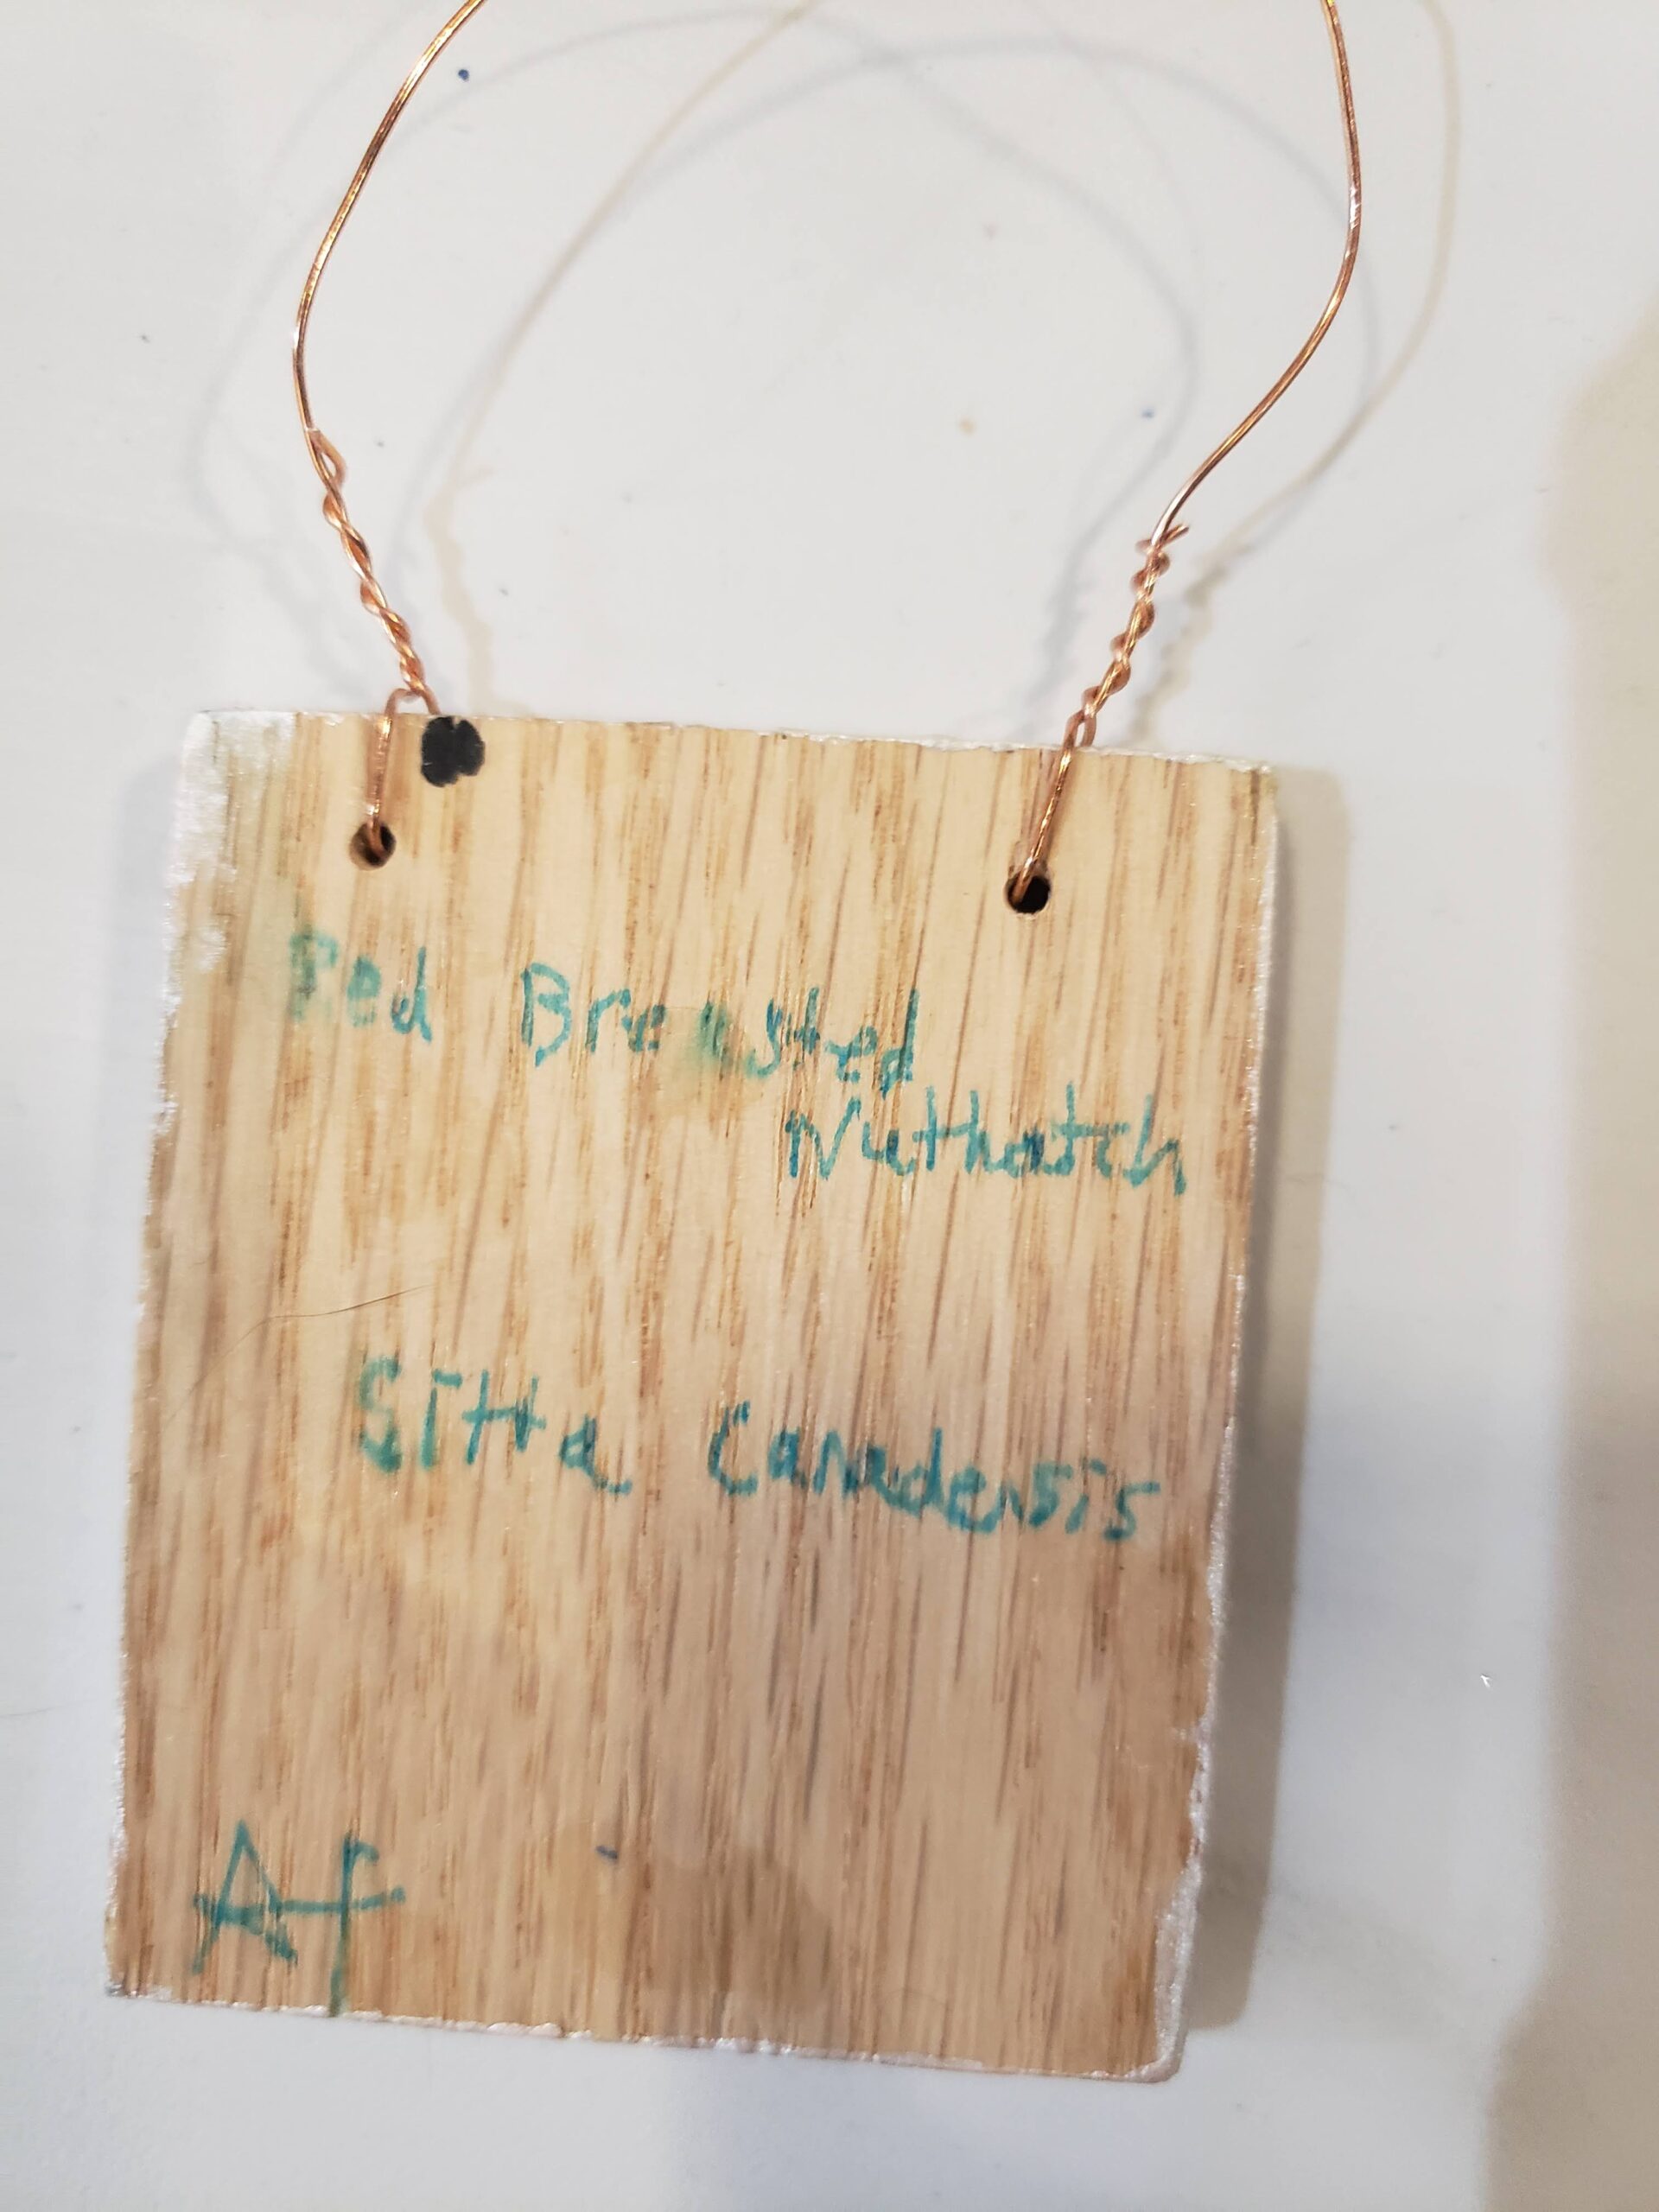 Red Breasted
Nuthatch
Sitta Canadensis
Af